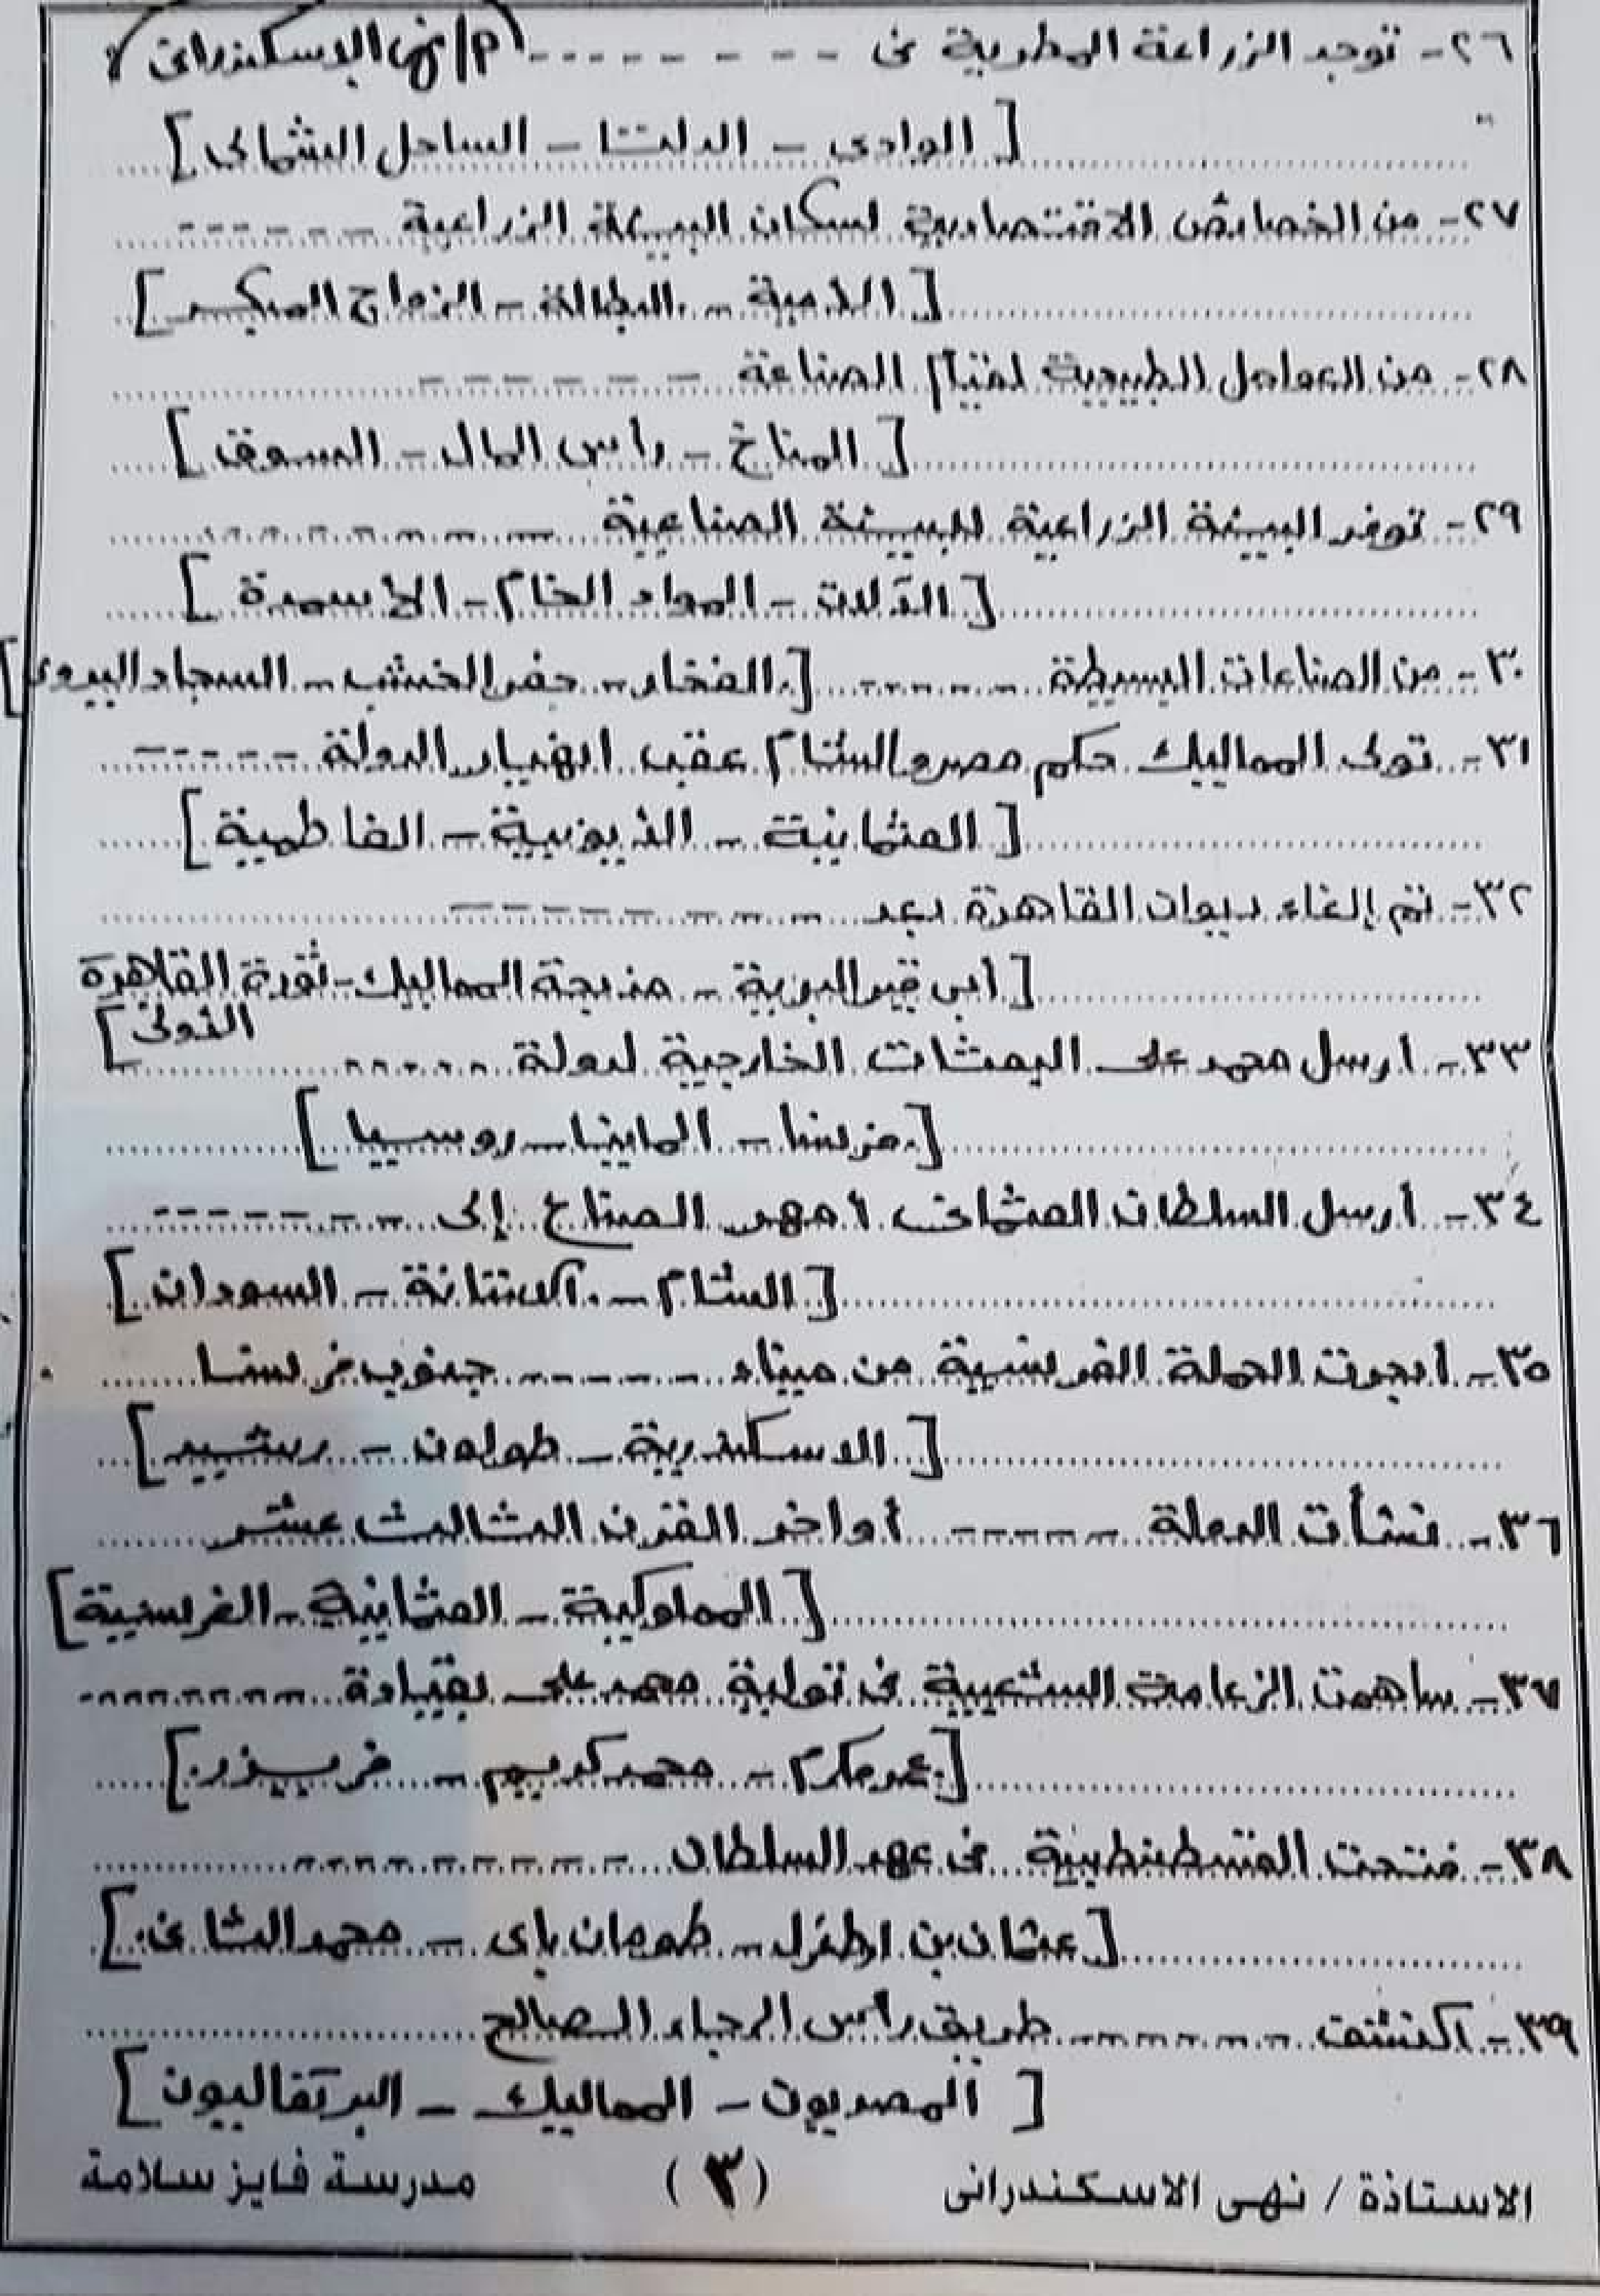 ٢٦- توجد الزراعة المطرية فى --------- (م/ نهى الاسكندرانى)
[ الوادى - الدلتا - الساحل الشمالى ]
٢٧- من الخصائص الاقتصادية لسكان البيئة الزراعية ------
[ الأمية - البطالة - الزواج المبكر ]
٢٨- من العوامل الطبيعية لقيام الصناعة -------
[ المناخ - رأس المال - السوق ]
٢٩- توفر البيئة الزراعية للبيئة الصناعية --------
[ الآلات - المواد الخام - الأسمدة ]
٣٠- من الصناعات البسيطة ------ [ الفخار - حفر الخشب - السجاد اليدوى ]
٣١- تولى المماليك حكم مصر والشام عقب انهيار الدولة ------
[ العثمانية - الأيوبية - الفاطمية ]
٣٢- تم إلغاء ديوان القاهرة بعد --------
[ أبى قير البرية - مذبحة المماليك - ثورة القاهرة
الأولى ]
٣٣- ارسل محمد على البعثات الخارجية لدولة ------
[ فرنسا - المانيا - روسيا ]
٣٤- أرسل السلطان العثمانى امهر الصناع إلى --------
[ الشام - الاستانة - السودان ]
٣٥- أبحرت الحملة الفرنسية من ميناء ------ جنوب فرنسا
[ الاسكندرية - طولون - رشيد ]
٣٦- نشأت الدولة ------ أواخر القرن الثالث عشر
[ المملوكية - العثمانية - الفرنسية ]
٣٧- ساهمت الزعامة الشعبية فى تولية محمد على بقيادة --------
[ عمر مكرم - محمد كريم - فريزر ]
٣٨- فتحت القسطنطينية فى عهد السلطان ---------
[ عثمان بن ارطغرل - طومان باى - محمد الثانى ]
٣٩- اكتشف ------- طريق رأس الرجاء الصالح
[ المصريون - المماليك - البرتقاليون ]
الاستاذة / نهى الاسكندرانى (٣) مدرسة فايز سلامة